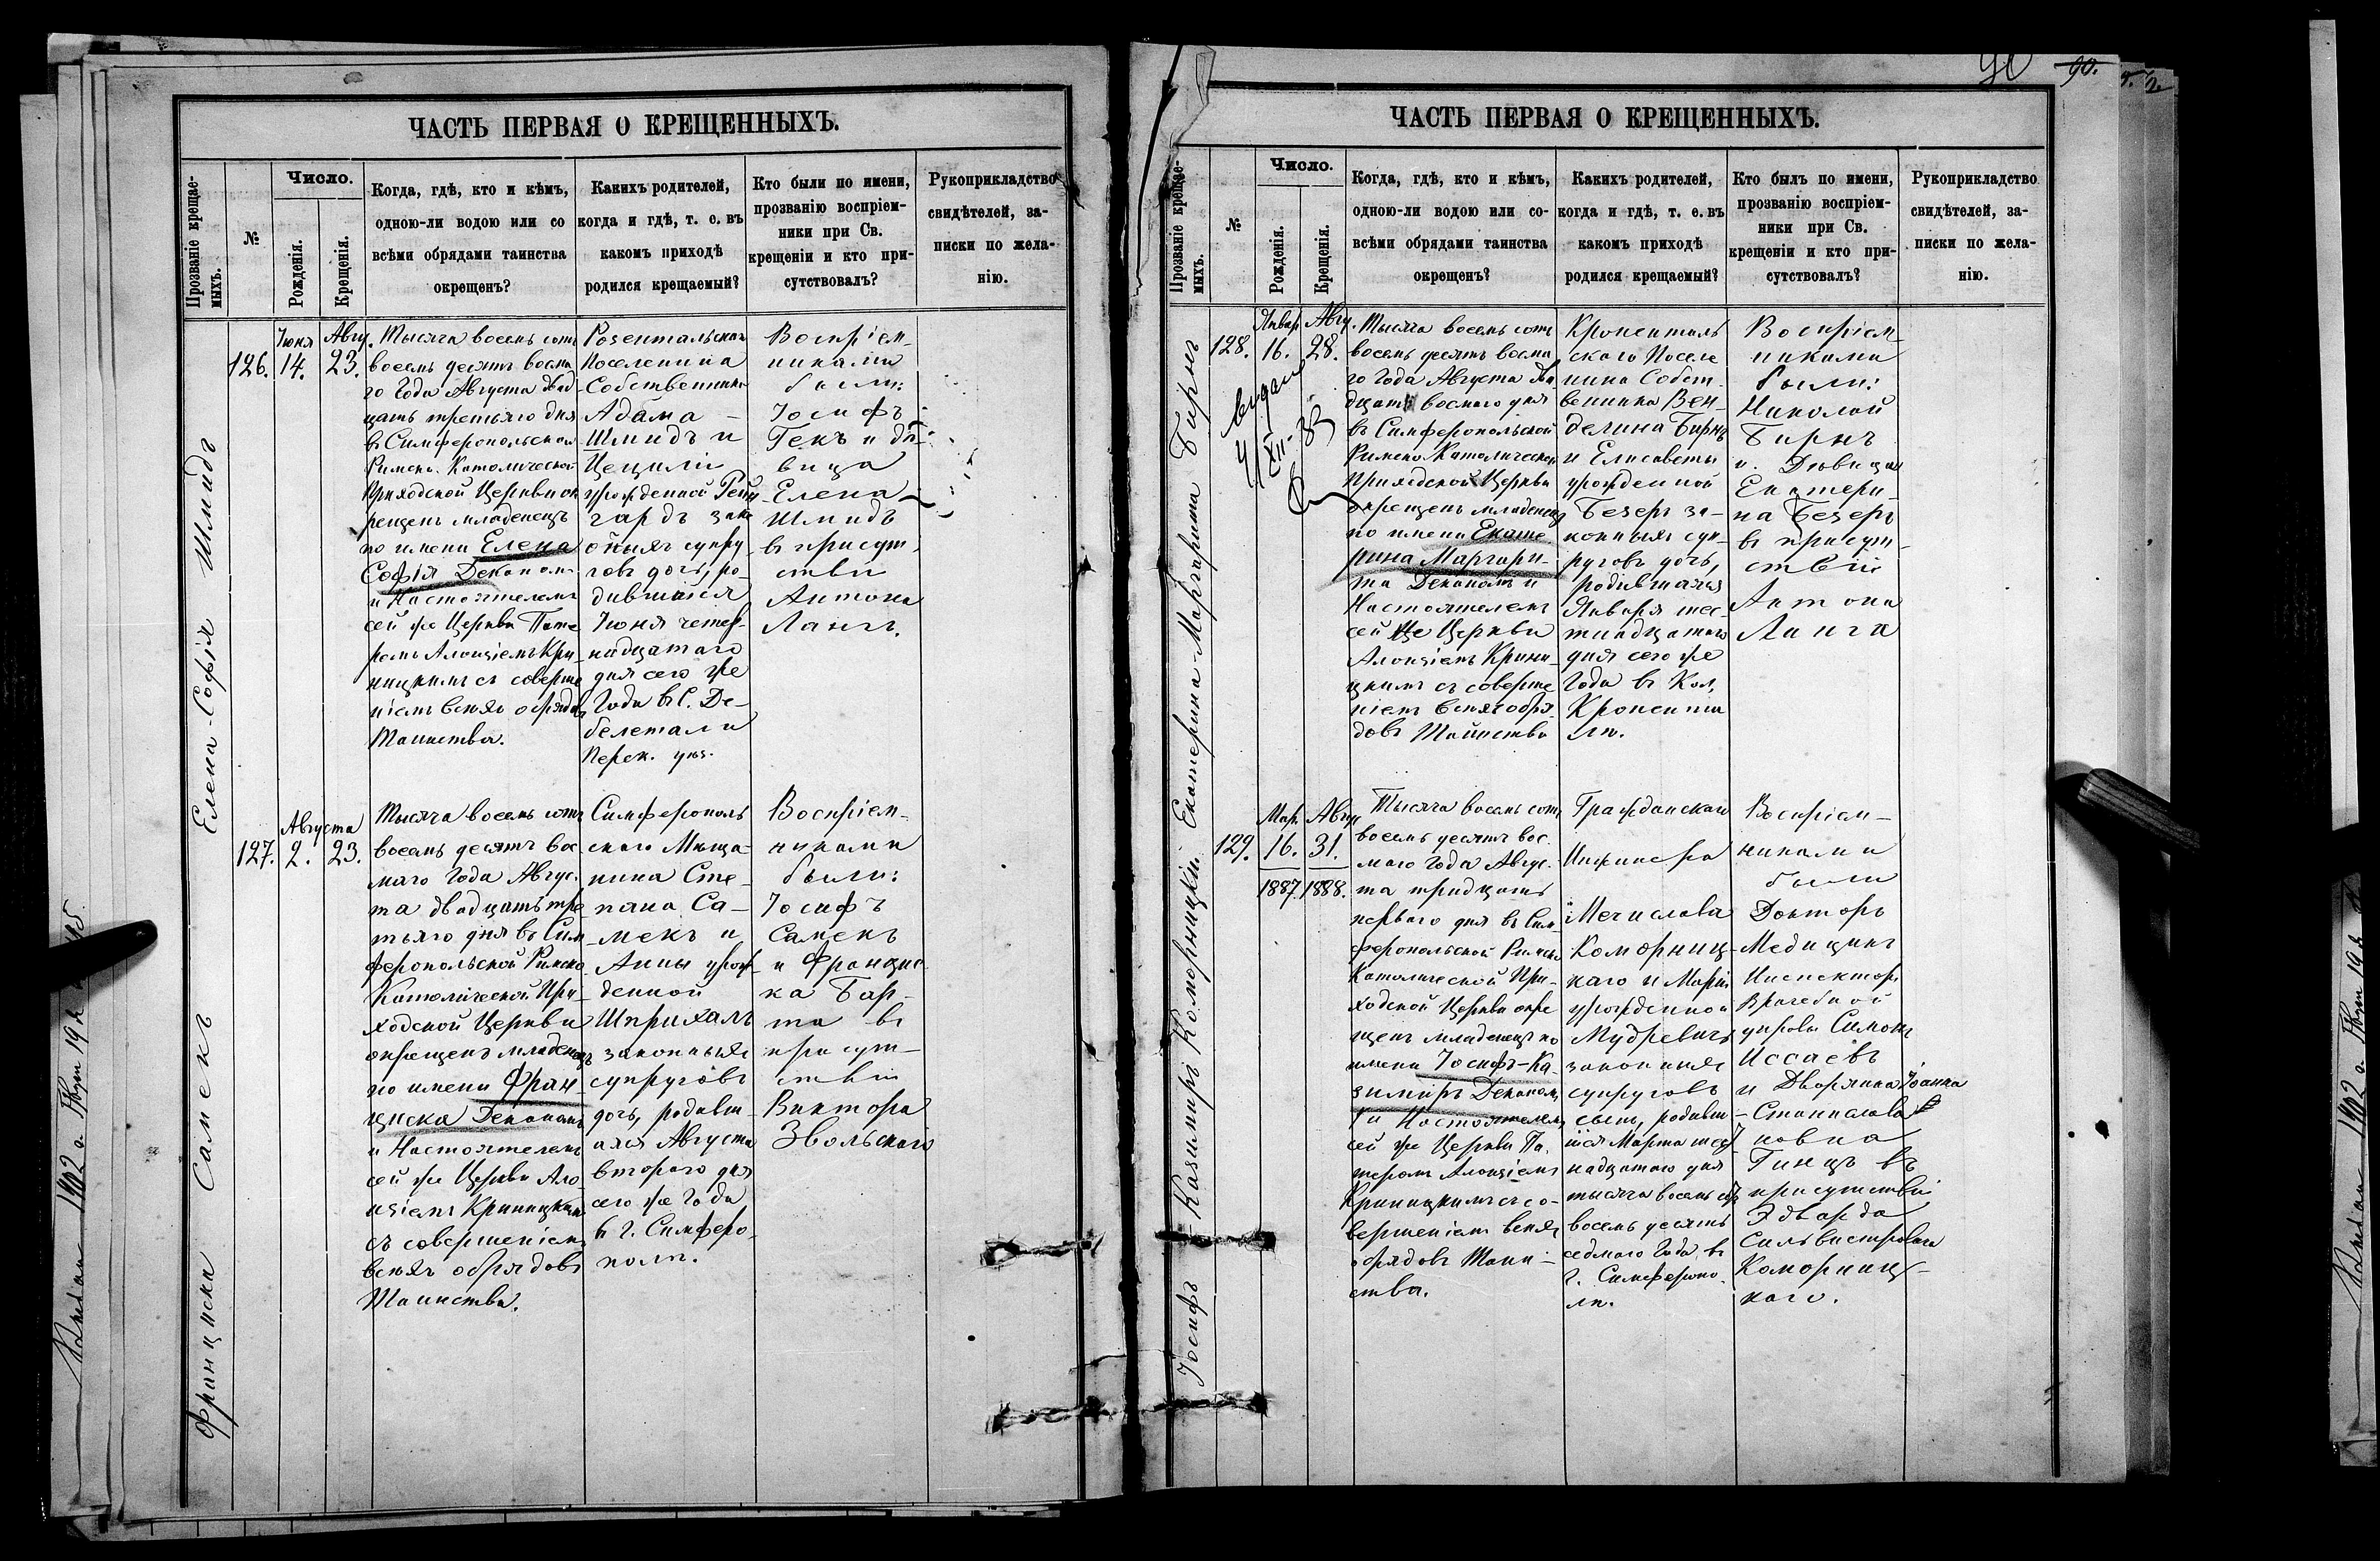 ЧАСТЬ ПЕРВАЯ О КРЕЩЕННЫХЪ.
Прозваніе крещае-
мыхъ.
№
Число.
Рожденія.
Крещенія.
Когда, гдѣ, кто и кѣмъ,
одною-ли водою или со
всѣми обрядами таинства
окрещенъ?
Какихъ родителей,
когда и гдѣ, т. е. въ
какомъ приходѣ
родился крещаемый?
Кто были по имени,
прозванію воспріем-
ники при Св.
крещеніи и кто при-
сутствовалъ?
Рукоприкладство
свидѣтелей, за-
писки по жела-
нію.
Елена-Софія Шмидъ
126.
Іюня
14.
Авгу.
23.
Тысяча восемь сотъ
восемь десятъ восма
го Года Августа двад
цать третьяго дня
въ Симферопольской
Римско. Католической
Приходской Церкви ок
рещенъ младенецъ
по имени Елена
Софія Деканомъ
и Настоятелемъ
сей же Церкви Пате
ромъ Алоизіемъ Кри
ницкимъ съ соверше
ніемъ всѣхъ обрядовъ
Таинства.
Розентальскаго
Поселенина
Собственника
Адама —
Шмидъ и
Цециліи
урожденной Рейн
гардъ зако
онныхъ супру
говъ дочь, ро-
дившаяся
Іюня четыр-
надцатаго
дня сего же
Года въ С. Де-
белетали
Перек. уѣз.
Воспріем-
никами
были:
Іосифъ
Гекъ и дѣ-
вица
Елена
Шмидъ
въ присут-
ствіи
Антона
Лангъ.
Франциска Самекъ
127.
Августа
2.
23.
Тысяча восемь сотъ
восемь десятъ вос
маго Года Авгус.
та двадцать тре
тьяго дня въ Сим
феропольской Римско
Католической При-
ходской Церкви
окрещенъ младенецъ
по имени Фран
циска Деканомъ
и Настоятелемъ
сей же Церкви Ало
изіемъ Криницкимъ
съ совершеніемъ
всѣхъ обрядовъ
Таинства.
Симферополь
скаго Мѣща-
нина Сте-
пана Са-
мекъ и
Анны урож-
денной
Шприхалъ
законныхъ
супруговъ
дочь, родивш-
аяся Августа
втораго дня
сего же Года
въ г. Симферо-
полѣ.
Воспріем-
никами
были:
Іосифъ
Самекъ
и Францис
ка Бар-
та въ
присут-
ствіи
Виктора
Звольскаго
90
90.
ЧАСТЬ ПЕРВАЯ О КРЕЩЕННЫХЪ.
Прозваніе крещае-
мыхъ.
№
Число.
Рожденія.
Крещенія.
Когда, гдѣ, кто и кѣмъ,
одною-ли водою или со-
всѣми обрядами таинства
окрещенъ?
Какихъ родителей,
когда и гдѣ, т. е. въ
какомъ приходѣ
родился крещаемый?
Кто былъ по имени,
прозванію воспріем-
ники при Св.
крещеніи и кто при-
сутствовалъ?
Рукоприкладство
свидѣтелей, за-
писки по жела-
нію.
Екатерина-Маргарита Бирнъ
128.
Январ
16.
Авгу.
28.
Тысяча восемь сотъ
восемь десятъ восма
го Года Августа два
дцать восмаго дня
въ Симферопольской
Римско Католической
Приходской Церкви
окрещенъ младенецъ
по имени Екате
рина Маргари-
та Деканомъ и
Настоятелемъ
сей же Церкви
Алоизіемъ Крини-
цкимъ съ соверше
ніемъ всѣхъ обря-
довъ Таинства
Кроненталь
скаго Поселе
нина Собст-
венника Вен-
делина Бирнъ
и Елисаветы
урожденной
Безеръ за-
конныхъ суп-
руговъ дочь,
родившаяся
Января шес-
тнадцатаго
дня сего же
Года въ Кол.
Кронента
лѣ.
Воспріем-
никами
были:
Николай
Бирнъ
и Дѣвица
Екатери-
на Безеръ
въ присут-
ствіи
Антона
Ланга
Іосифъ-Казимиръ Коморницкій
129.
Мар.
16.
1887.
Авгу
31.
1888.
Тысяча восемь сотъ
восемь десятъ вос.
маго Года Авгус-
та тридцать
перваго дня въ Сим-
феропольской Римско
Католической При-
ходской Церкви окре
щенъ младенецъ по
имени Іосифъ-Ка-
зимиръ Деканомъ
и Настоятелемъ
сей же Церкви Па-
теромъ Алоизіемъ
Криницкимъ съ со-
вершеніемъ всѣхъ
обрядовъ Таин-
ства.
Гражданскаго
Инженера
Мечислава
Коморниц-
каго и Маріи
урожденной
Мудревичъ
законныхъ
супруговъ
сынъ, родивш-
ійся Марта шест
надцатаго дня
тысяча восемь сотъ
восемь десятъ
седмаго Года въ
г. Симферопо-
лѣ.
Воспріем-
никами
были
Докторъ
Медицины
Инспекторъ
Врачебной
управы Симонъ
Иссаевъ
и Дворянка Іоанна
Станиславов
новна
Гинцъ въ
присутствіи
Эдварда
Сильвестрова
Коморниц-
каго.